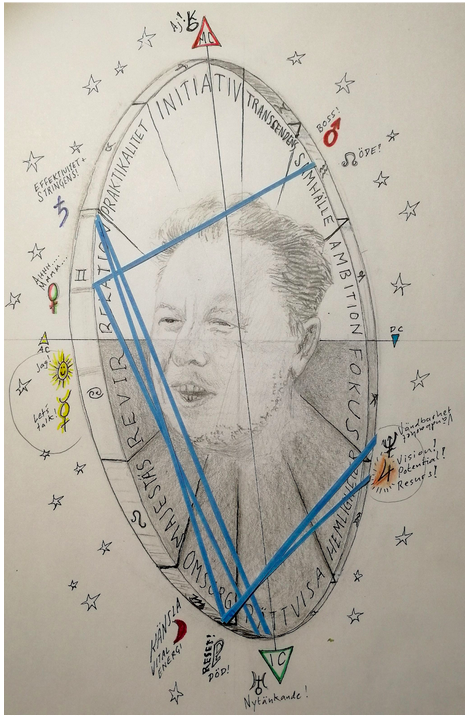 Aj!
MC
INITIATIV
TRANSCENDENS
BOSS!
ÖDE?
SAMHÄLLE
AMBITION
FOKUS
DC
Vändbarhet
Vision!
Potential!
Resurs!
HEMLIGHET
RÄTTVISA
IC
Nytänkande!
RESET!
DÖD!
KÄNSLA
VITAL
ENERGI
OMSORG
MAJESTÄS
REVIR
Let's
talk!
Jag!
AC
RELATION
EFFEKTIVITET +
STRINGENS!
PRAKTIKALITET